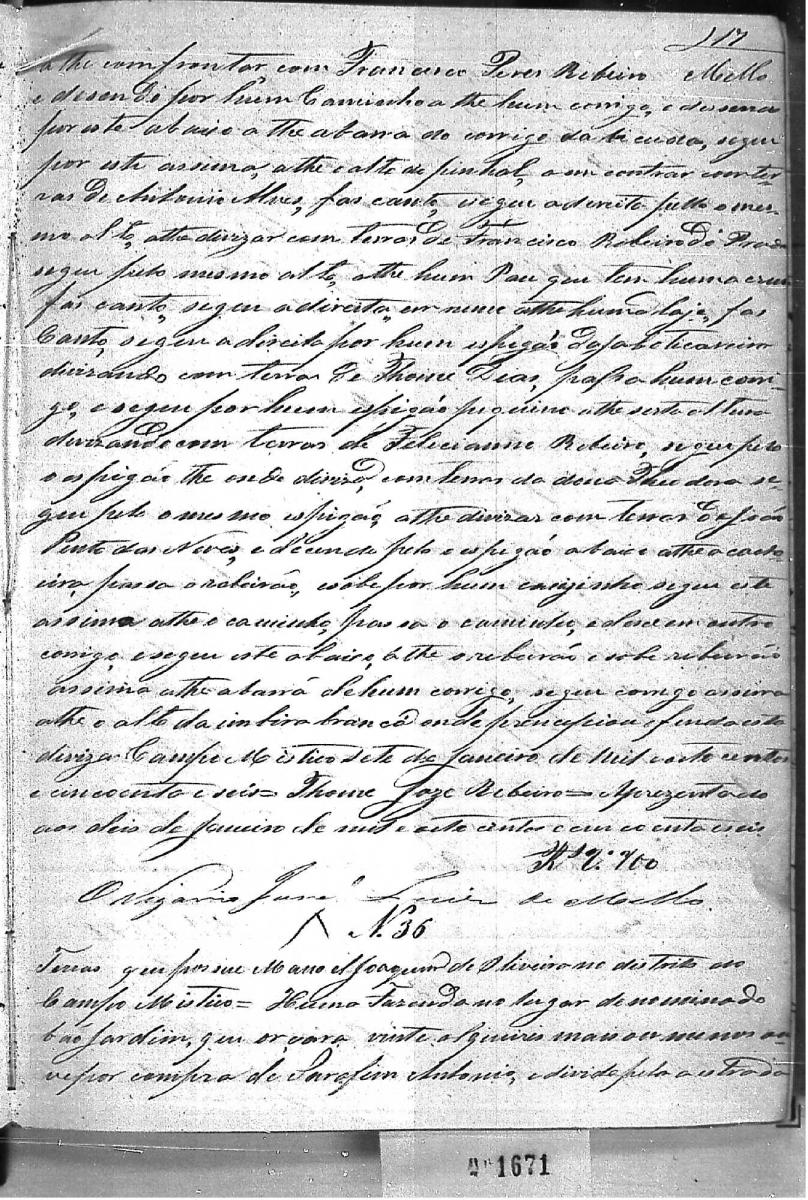 117
athe comfrontar com Francisco Peres Ribeiro Mello
e desendo por hum Caminho athe hum corrigo, e desend
por este abaixo athe abarra do corrigo da becuda, segue
por este assima, athe o alto do pinhal, a em contrar com ter-
ras de Antonio Alves, fas canto, e segue adireita pello o mes-
mo alto, athe divizar com terras de Francisco Ribeiro do Prado
segue pelo mesmo alto, athe hum Pau que tem huma crus
fas canto, segue adireita, em rume athe huma laje, fas
Canto, segue adireita por hum espigão da Jaboticaveira
divizando com terras de Thome Dias, passa hum corri-
go, e segue por hum espigão piqueno athe serta altura
devizando com terras de Felecianno Ribeiro, segue pelo
o espigão the onde diviza, com terras da dona Theodora se-
gue pelo o mesmo espigão, athe divizar com terras de João
Pinto das Neves, e decendo pelo o espigão abaixo athe a caxo-
eira, passa o ribeirão, e sobe por hum corginho segue este
assima athe o caminho, passa o caminho, e desce em outro
corrigo, e segue este abaixo, athe o ribeirão e sobe ribeirão
assima athe abarra de hum corrigo, segue corrigo assima
athe o alto da imbira branca onde prencepiou e finda esta
diviza Campo Mistico sete de Janeiro de mil e oito centos
e cincoenta e seis = Thome Joze Ribeiro = Aprezentado
aos deis de Janeiro de mil e oito centos e cincoenta e seis
O Vigario José Luiz de Mello.
N. 36
Terras que possue Manoel Joaquim de Oliveira no distrito do
Campo Mistico = Huma Fazenda no lugar denominado
bão Jardim, que orçara vinte alqueires mais ou menos ou-
ve por compra de Sarafim Antonio, e divide pela a estrada
1671